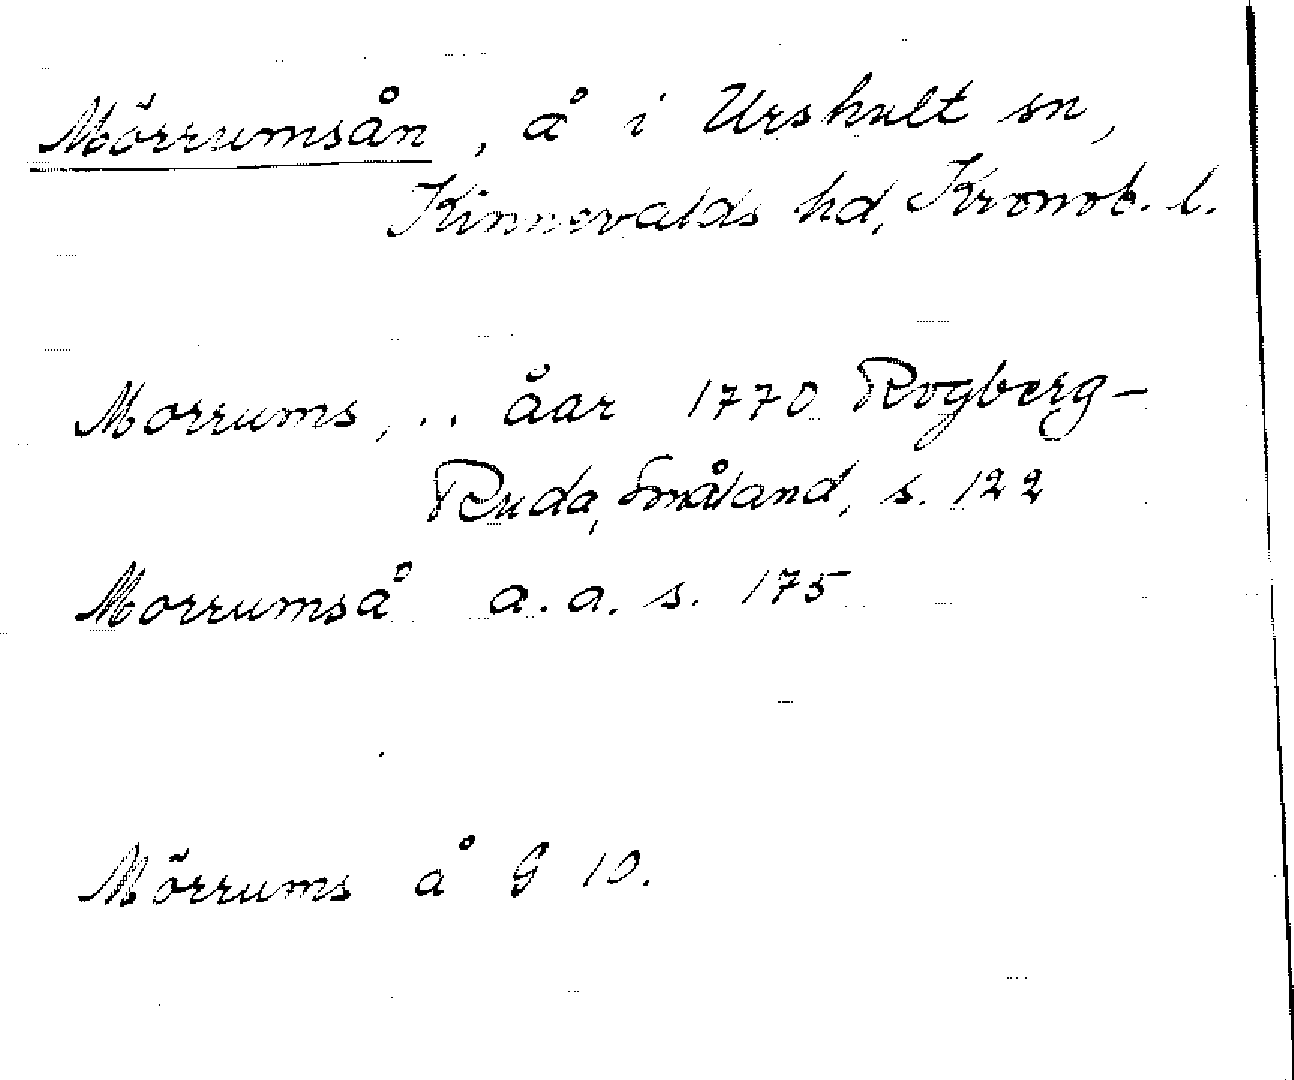 Mörrumsån, å i Urshult sn,
Kinnevalds hd, Kronob. l.
Morrums, .. åar 1770 Rogberg-
Ruda, Småland, s. 122
Morrumså a. a. s. 175
Mörrums å G 10.